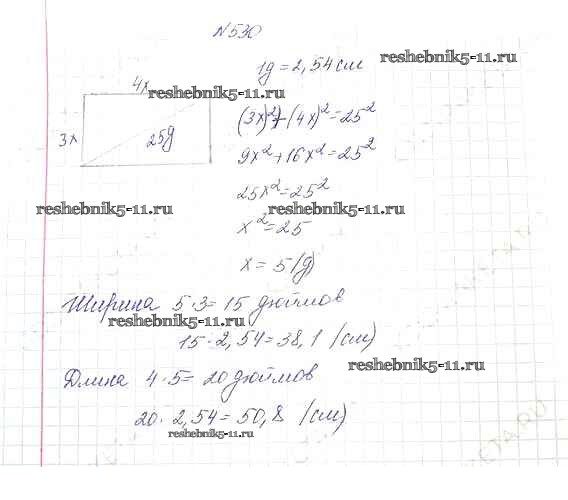 №530
1g = 2,54 см
reshebnik5-11.ru
4x
reshebnik5-11.ru
(3x)²+(4x)²=25²
3x
25g
9x²+16x²=25²
25x²=25²
reshebnik5-11.ru
reshebnik5-11.ru
x²=25
x = 5 (g)
Ширина 5·3= 15 дюймов
reshebnik5-11.ru
15·2,54=38,1 (см)
reshebnik5-11.ru
Длина 4·5= 20 дюймов
20·2,54=50,8 (см)
reshebnik5-11.ru